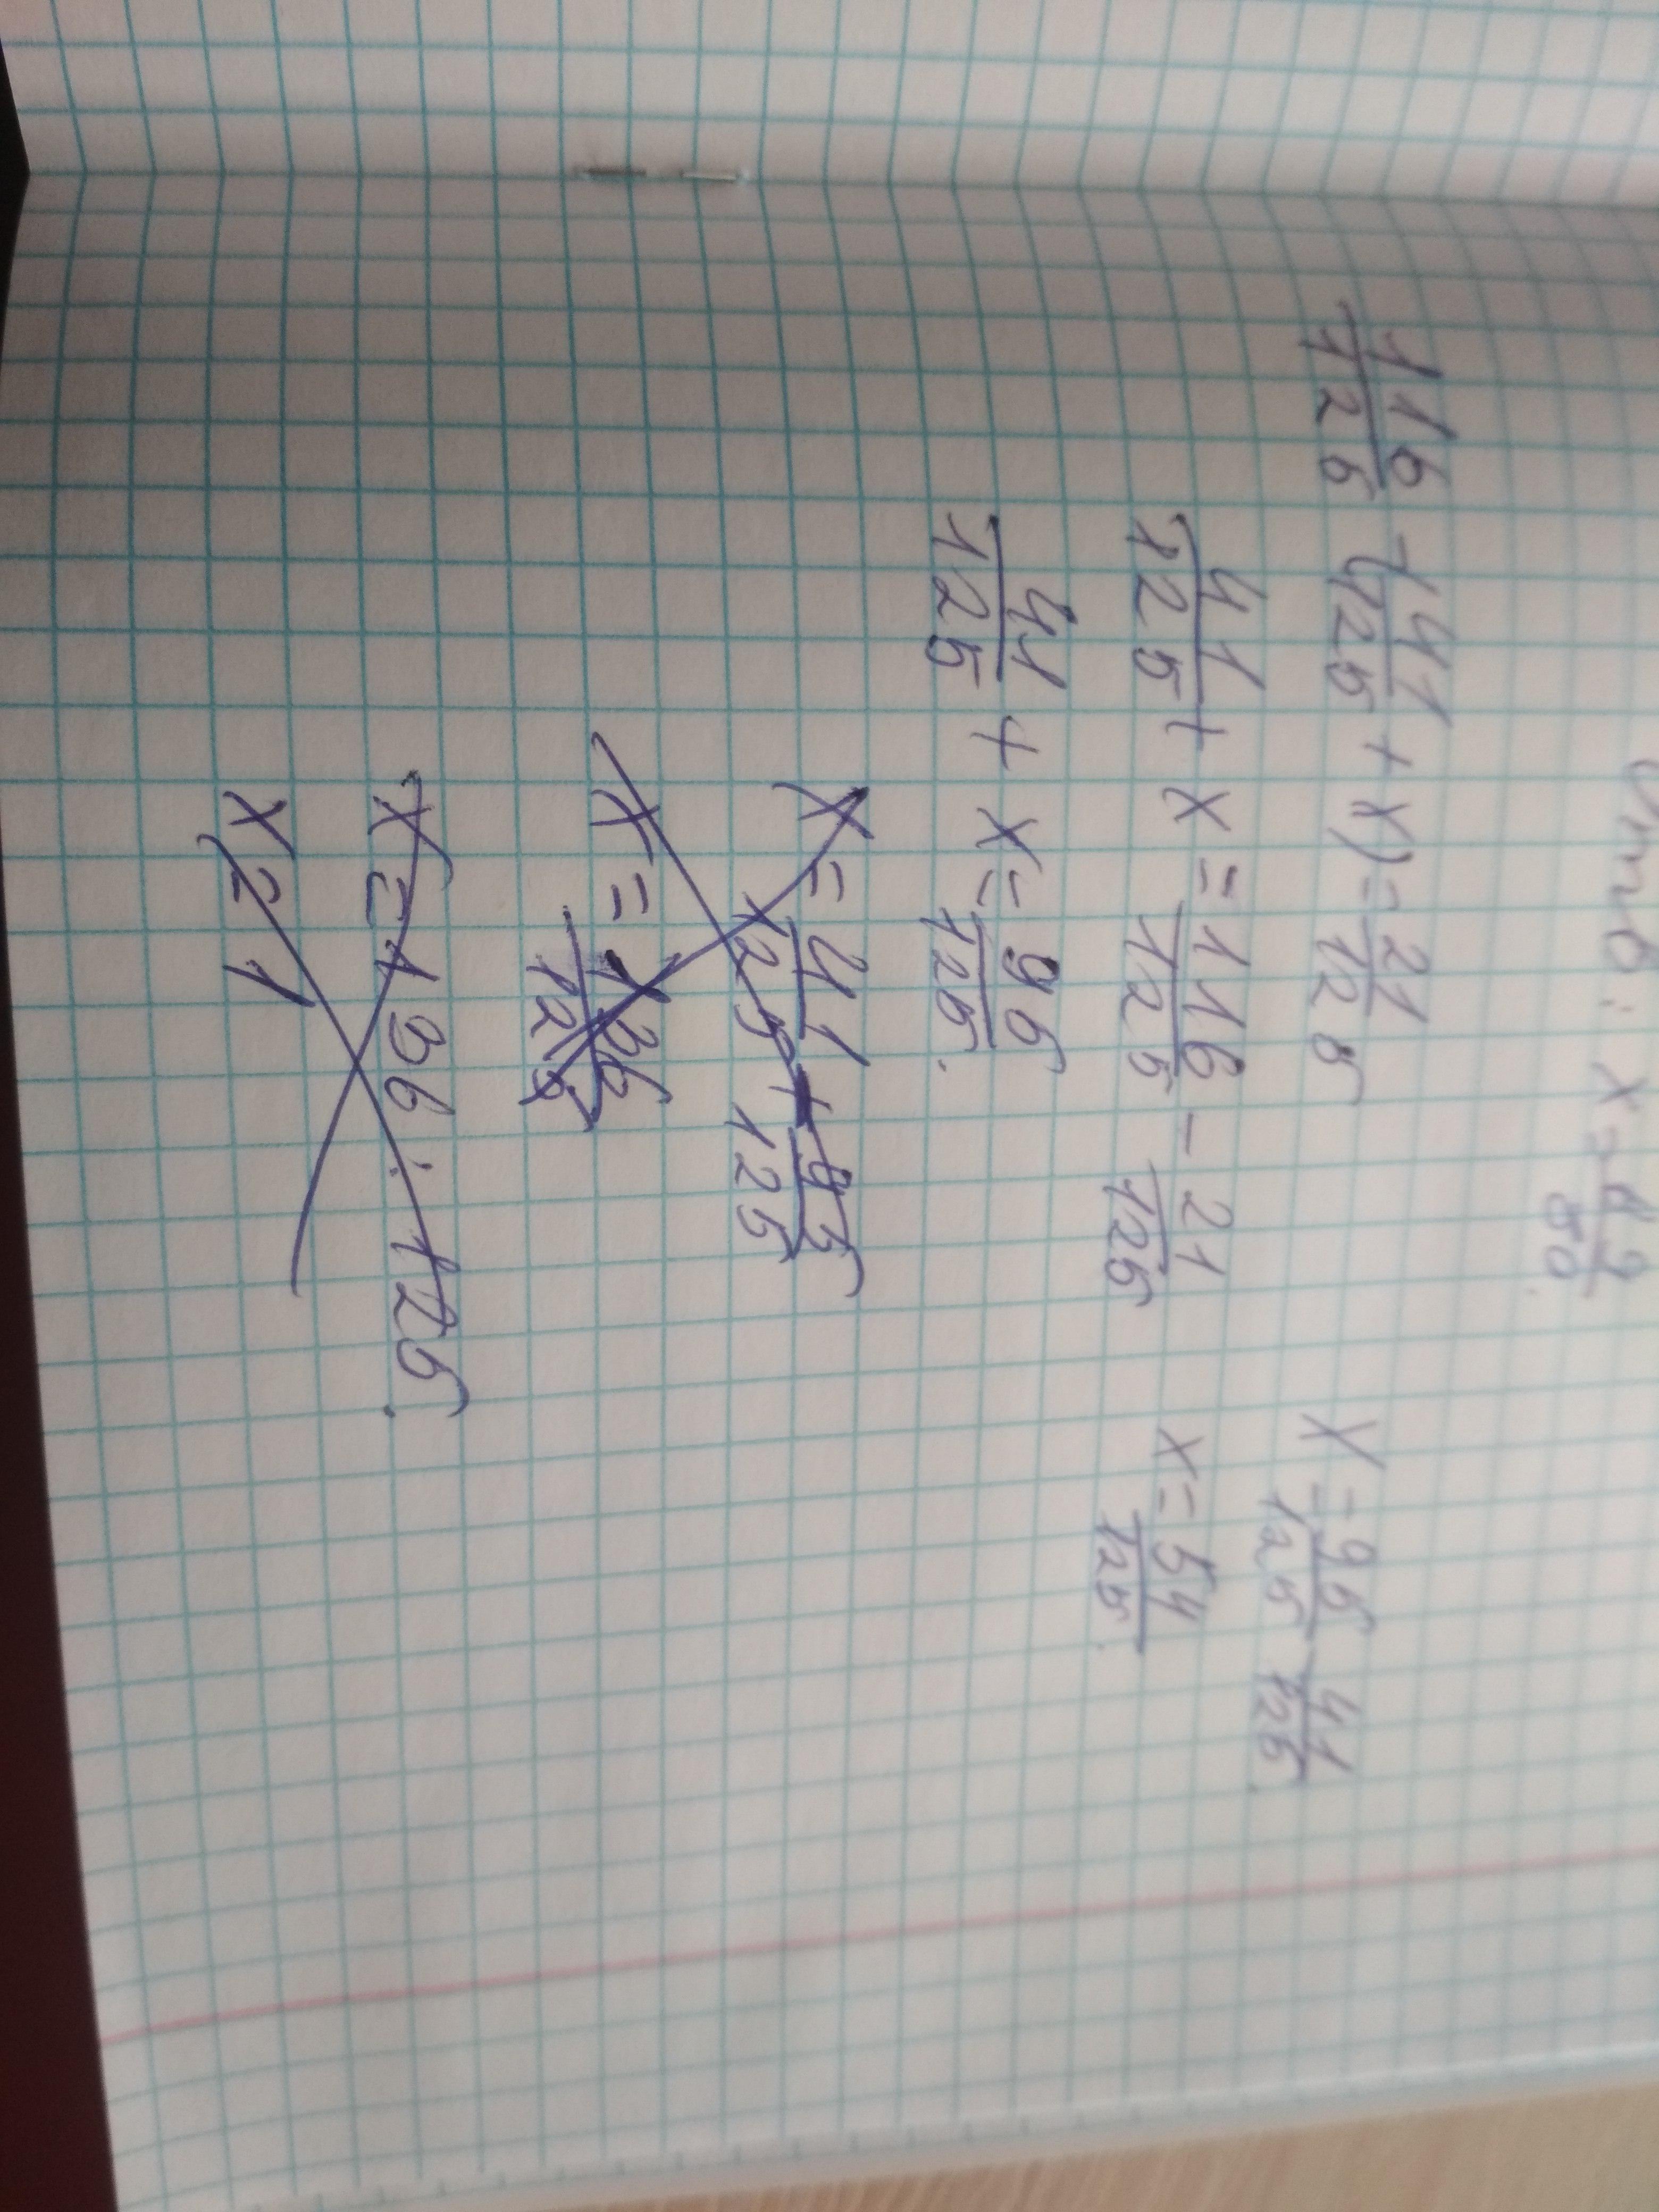 x = 42/50.
116/125 - (41/125 + x) = 21/125
41/125 + x = 116/125 - 21/125
41/125 + x = 95/125.
x = 41/125 + 95/125
x = 136/125
x = 136 : 125.
x = 1
x = 95/125 41/125.
x = 54/125.